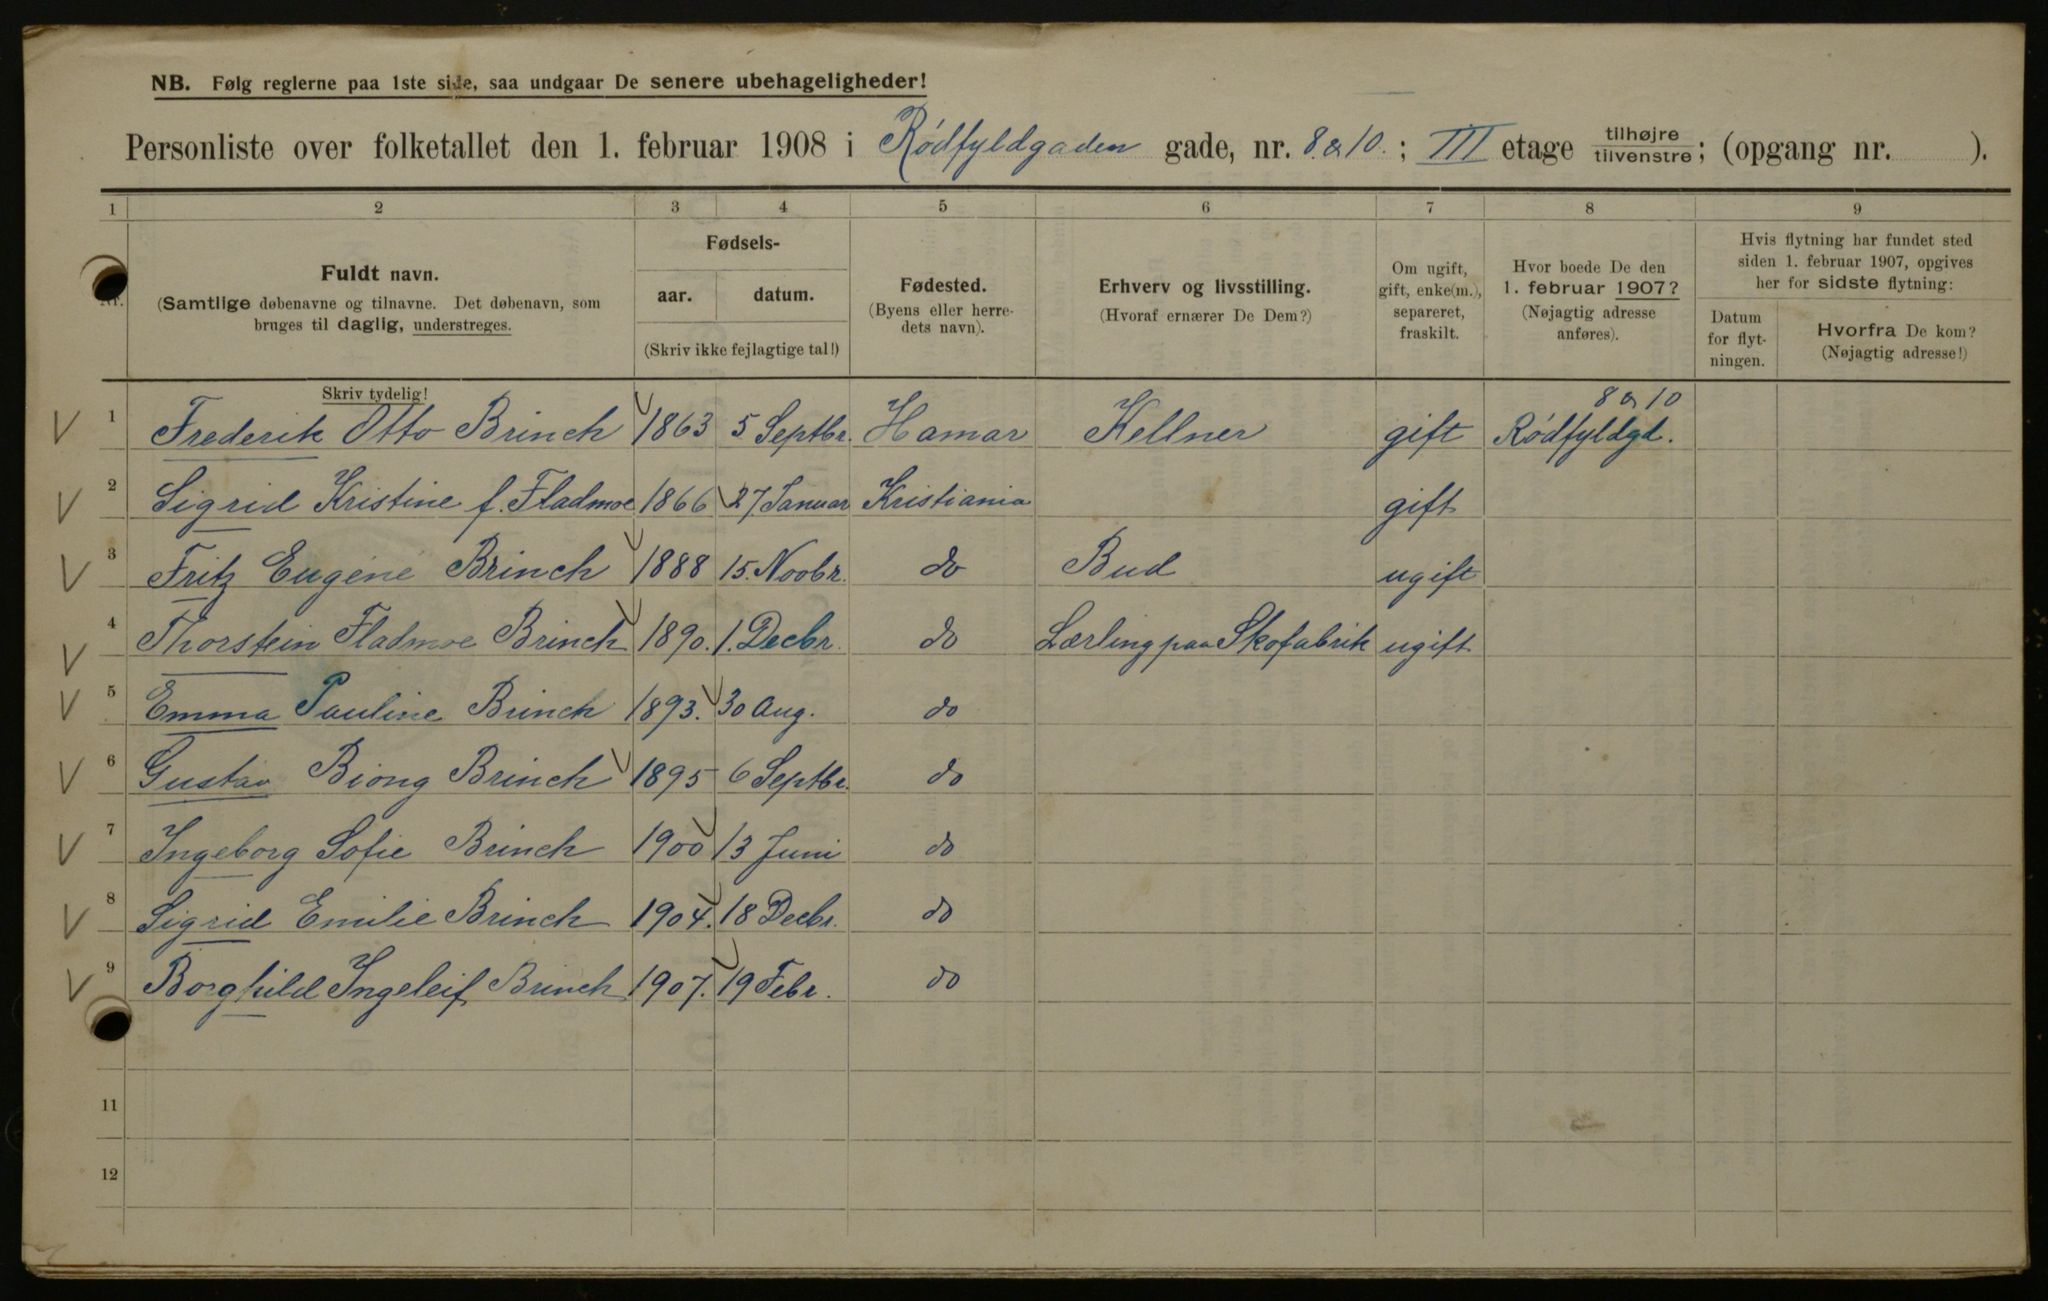 NB. Følg reglerne paa 1ste side, saa undgaar De senere ubehageligheder!
Personliste over folketallet den 1. februar 1908 i Rødfyldgaden gade, nr. 8 & 10. ; III etage tilhøjre tilvenstre; (opgang nr. ).
1 2 3 4 5 6 7 8 9
Nr.
Fuldt navn.
(Samtlige døbenavne og tilnavne. Det døbenavn, som
bruges til daglig, understreges.
Fødsels-
aar. datum.
(Skriv ikke fejlagtige tal!)
Fødested.
(Byens eller herre-
dets navn).
Erhverv og livsstilling.
(Hvoraf ernærer De Dem?)
Om ugift,
gift, enke(m.),
separeret,
fraskilt.
Hvor boede De den
1. februar 1907?
(Nøjagtig adresse
anføres).
Hvis flytning har fundet sted
siden 1. februar 1907, opgives
her for sidste flytning:
Datum
for flyt-
ningen.
Hvorfra De kom?
(Nøjagtig adresse!)
Skriv tydelig!
8 & 10
1 Frederik Otto Brinch 1863 5 Septbr. Hamar Kellner gift Rødfyldgd.
2 Sigrid Kristine f. Fladmoe 1866 27 Januar Kristiania gift
3 Fritz Eugéne Brinch 1888 15. Novbr. do Bud ugift
4 Thorstein Fladmoe Brinch 1890. 1. Decbr. do Lærling paa Skofabrik ugift
5 Emma Pauline Brinch 1893. 30 Aug. do
6 Gustav Biong Brinch 1895 6 Septbr. do
7 Ingeborg Sofie Brinch 1900 13 Juni do
8 Sigrid Emilie Brinch 1904. 18 Decbr. do
9 Borghild Ingeleif Brinch 1907. 19 Febr. do
11
12